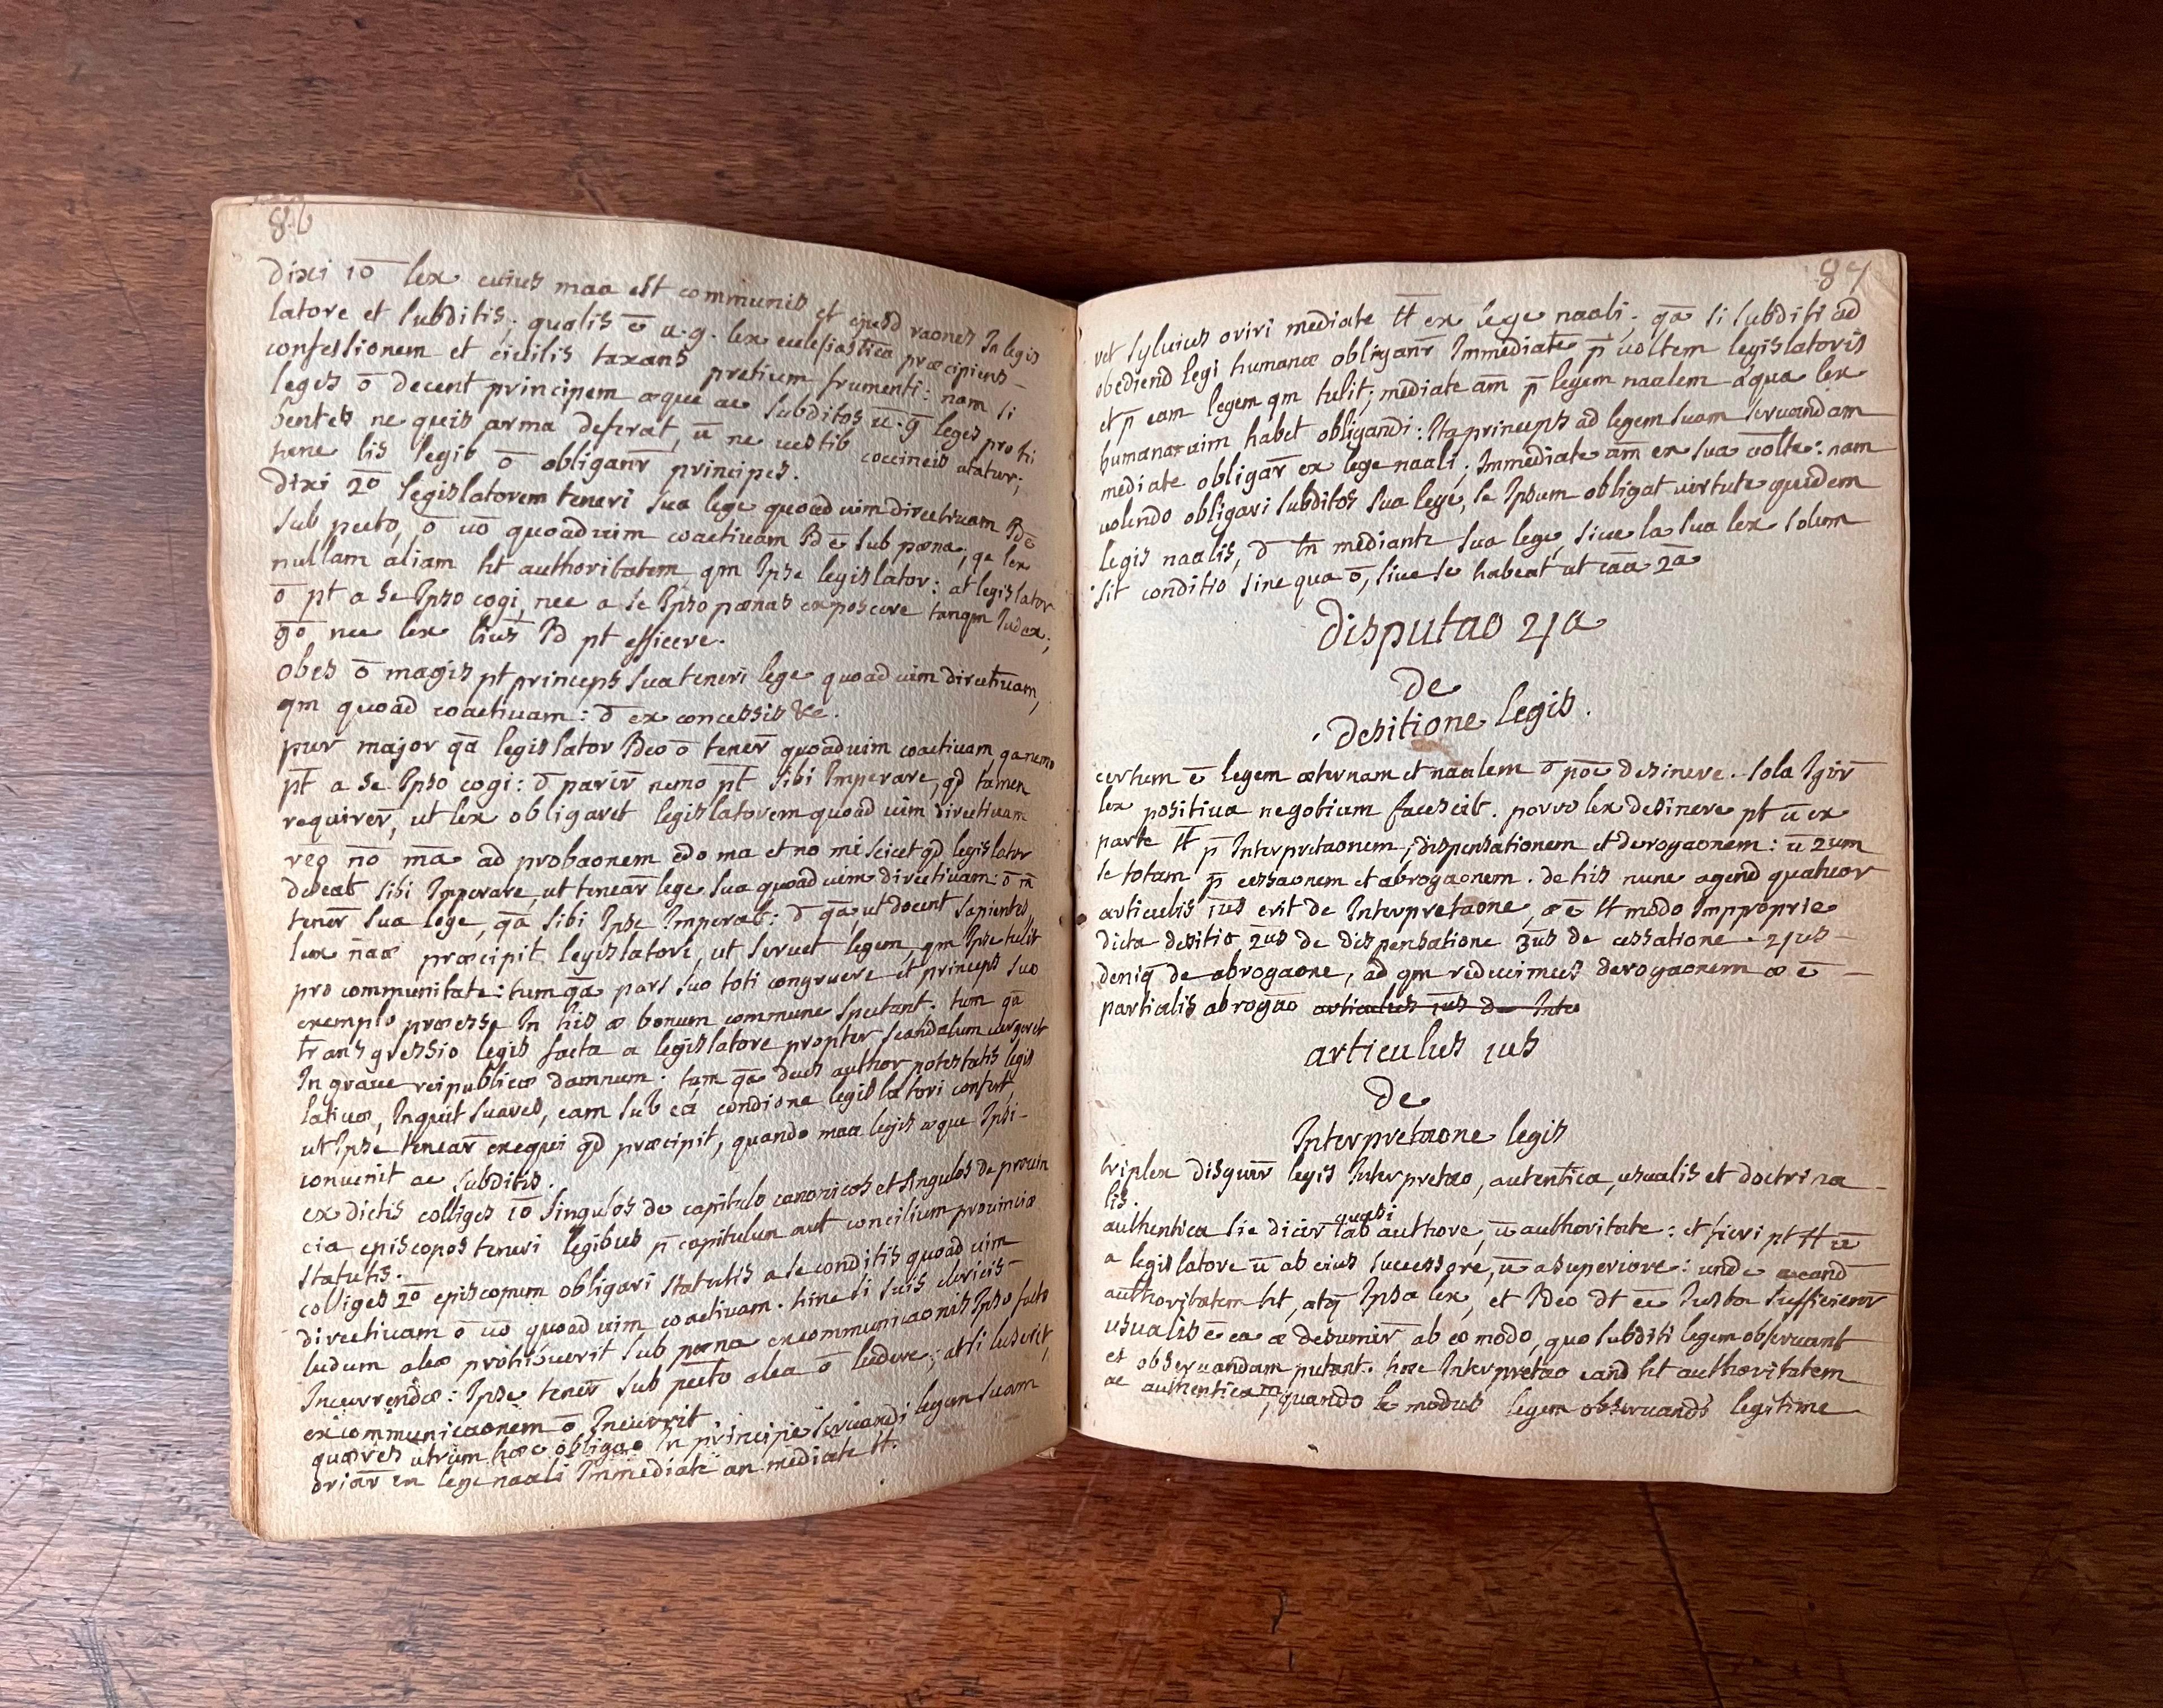 86
dixi 1o lex cuius maa est communis et ejusd raones In legis
latore et subditis; qualis ē u.g. lex ecclesiastica præcipiens
confessionem et civilis taxans pretium frumenti: nam si
leges ō decent principem æque ac subditos u.g leges prohi
bentes ne quis arma deferat, ū ne vestib coccineis utatur;
hinc lis legib ō obliganr̄ principes.
dixi 2o legislatorem teneri sua lege quoad vim directivam Id ē
sub pecto, ō uō quoad vim coactivam Id ē sub pœna, qe lex
nullam aliam ht authoritatem qm Ipse legislator: at legislator
ō pt a se Ipso cogi, nec a se Ipso pœnas exposcere tanqm Iudex;
go nec lex lius Id pt efficere.
obes ō magis pt princeps sua teneri lege quoad vim directivam,
qm quoad coactivam: d ex concessis &c.
pur major qā legislator Ideo ō tener̄ quoad vim coactivam qa nemo
pt a se Ipso cogi: d parir̄ nemo pt sibi Imperare, qd tamen
requirer̄, ut lex obligaret legislatorem quoad vim directivam
reg nō mā ad probaonem edo ma et no mi scicet qd legislator
debeat sibi Imperare, ut tenear̄ lege sua quoad vim directivam: ō n̄
tener̄ sua lege, qā sibi Ipse Imperat: d qā, ut docent sapientes,
lex nāæ præcipit legislatori, ut servet legem, qm Ipse tulit
pro communitate: tum qā pars suo toti congruere et princeps suo
exemplo præesse In his æ bonum commune spectant. tum qā
transgressio legis facta a legislatore propter scandalum vergeret
In grave reipublicæ damnum. tum qā deus author potestatis legis
lativæ, Inquit suares, eam sub eā condione legislatori confert,
ut Ipse tenear̄ exequi qd præcipit, quando maa legis æque Ipsi
convenit ac subditis.
ex dictis colliges 1o singulos de capitulo canonicos et singulos de provin
cia episcopos teneri legibus p̄ capitulum aut concilium provinciæ
statutis.
colliges 2o episcopum obligari statutis a se conditis quoad vim
directivam ō uō quoad vim coactivam. hinc si suis clericis
ludum aleæ prohibuerit sub pœna excommunicaonis Ipso facto
Incurrendæ: Ipse tener̄ sub pecto alea ō ludere; at si luserit,
excommunicaonem ō Incurrit
quæres utrum hæc obligao In principe servandi legem suam
oriar̄ ex lege naali Immediate an mediate tt.
87
vet sylvius oriri mediate tt ex lege naali; qā si subditi ad
obediend legi humanæ obliganr̄ Immediate p̄ voltem legislatoris
et p̄ eam legem qm tulit; mediate am̄ p̄ legem naalem a qua lex
humana vim habet obligandi: Ita princeps ad legem suam servandam
mediate obligar̄ ex lege naali; Immediate am̄ ex sua volte: nam
volendo obligari subditos sua lege, se Ipsum obligat virtute quidem
legis naalis, d tn mediante sua lege, sive la sua lex solum
sit conditio sine qua ō, sive se habeat ut caā 2ā
disputao 4a
de
desitione legis.
certum ē legem æternam et naalem d poē desinere. sola Igir̄
lex positiva negotium facescit. porro lex desinere pt ū ex
parte tt p̄ Interpretaonem, dispensationem et derogaonem: ū 2um
se totam p̄ cessaonem et abrogaonem. de his nunc agend quatuor
articulis 1us erit de Interpretaone, æ ē tt modo Improprie
dicta desitio 2us de dispensatione 3us de cessatione. 4us
deniq de abrogaone, ad qm reducimus derogaonem æ ē
partialis abrogao articulus 1us de Inte
articulus 1us
de
Interpretaone legis
triplex disguir̄ legis Interpretao, autentica, usualis et doctrina
lis.
quasi
authentica sic dicir̄ ab authore, ū authoritate: et fieri pt tt ū
a legislatore ū ab eius successore, ū a superiore: unde eand
authoritatem ht, atq Ipsa lex, et Ideo dt eē Iusta sufficienr̄
usualis ē ea æ desumir̄ ab eo modo, quo subditi legem observant
et observandam putant. hæc Interpretao eand ht authoritatem
ac authenticam, quando le modus legem observandi legitime